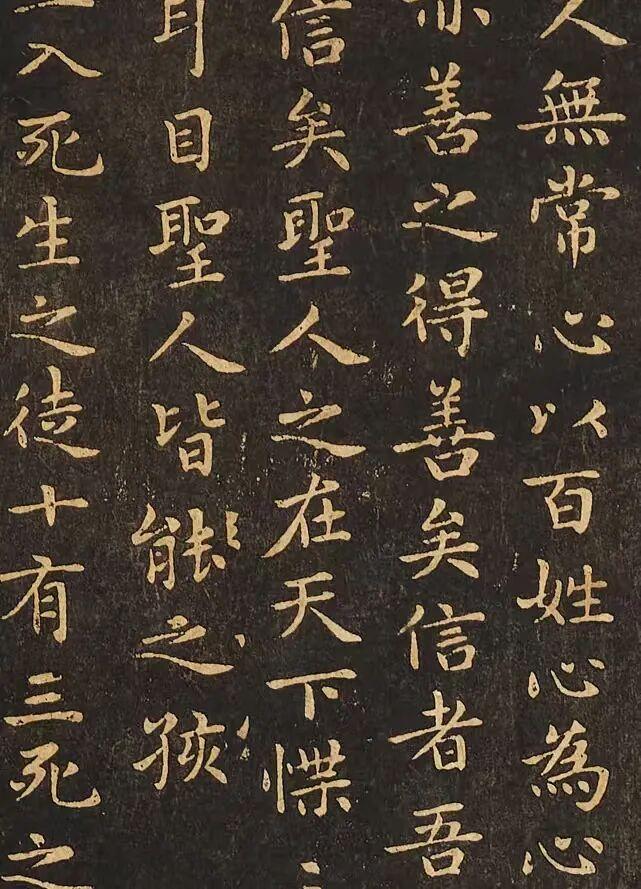 人無常心以百姓心為心
亦善之得善矣信者吾
信矣聖人之在天下惵
耳目聖人皆能之孩
入死生之徒十有三死之